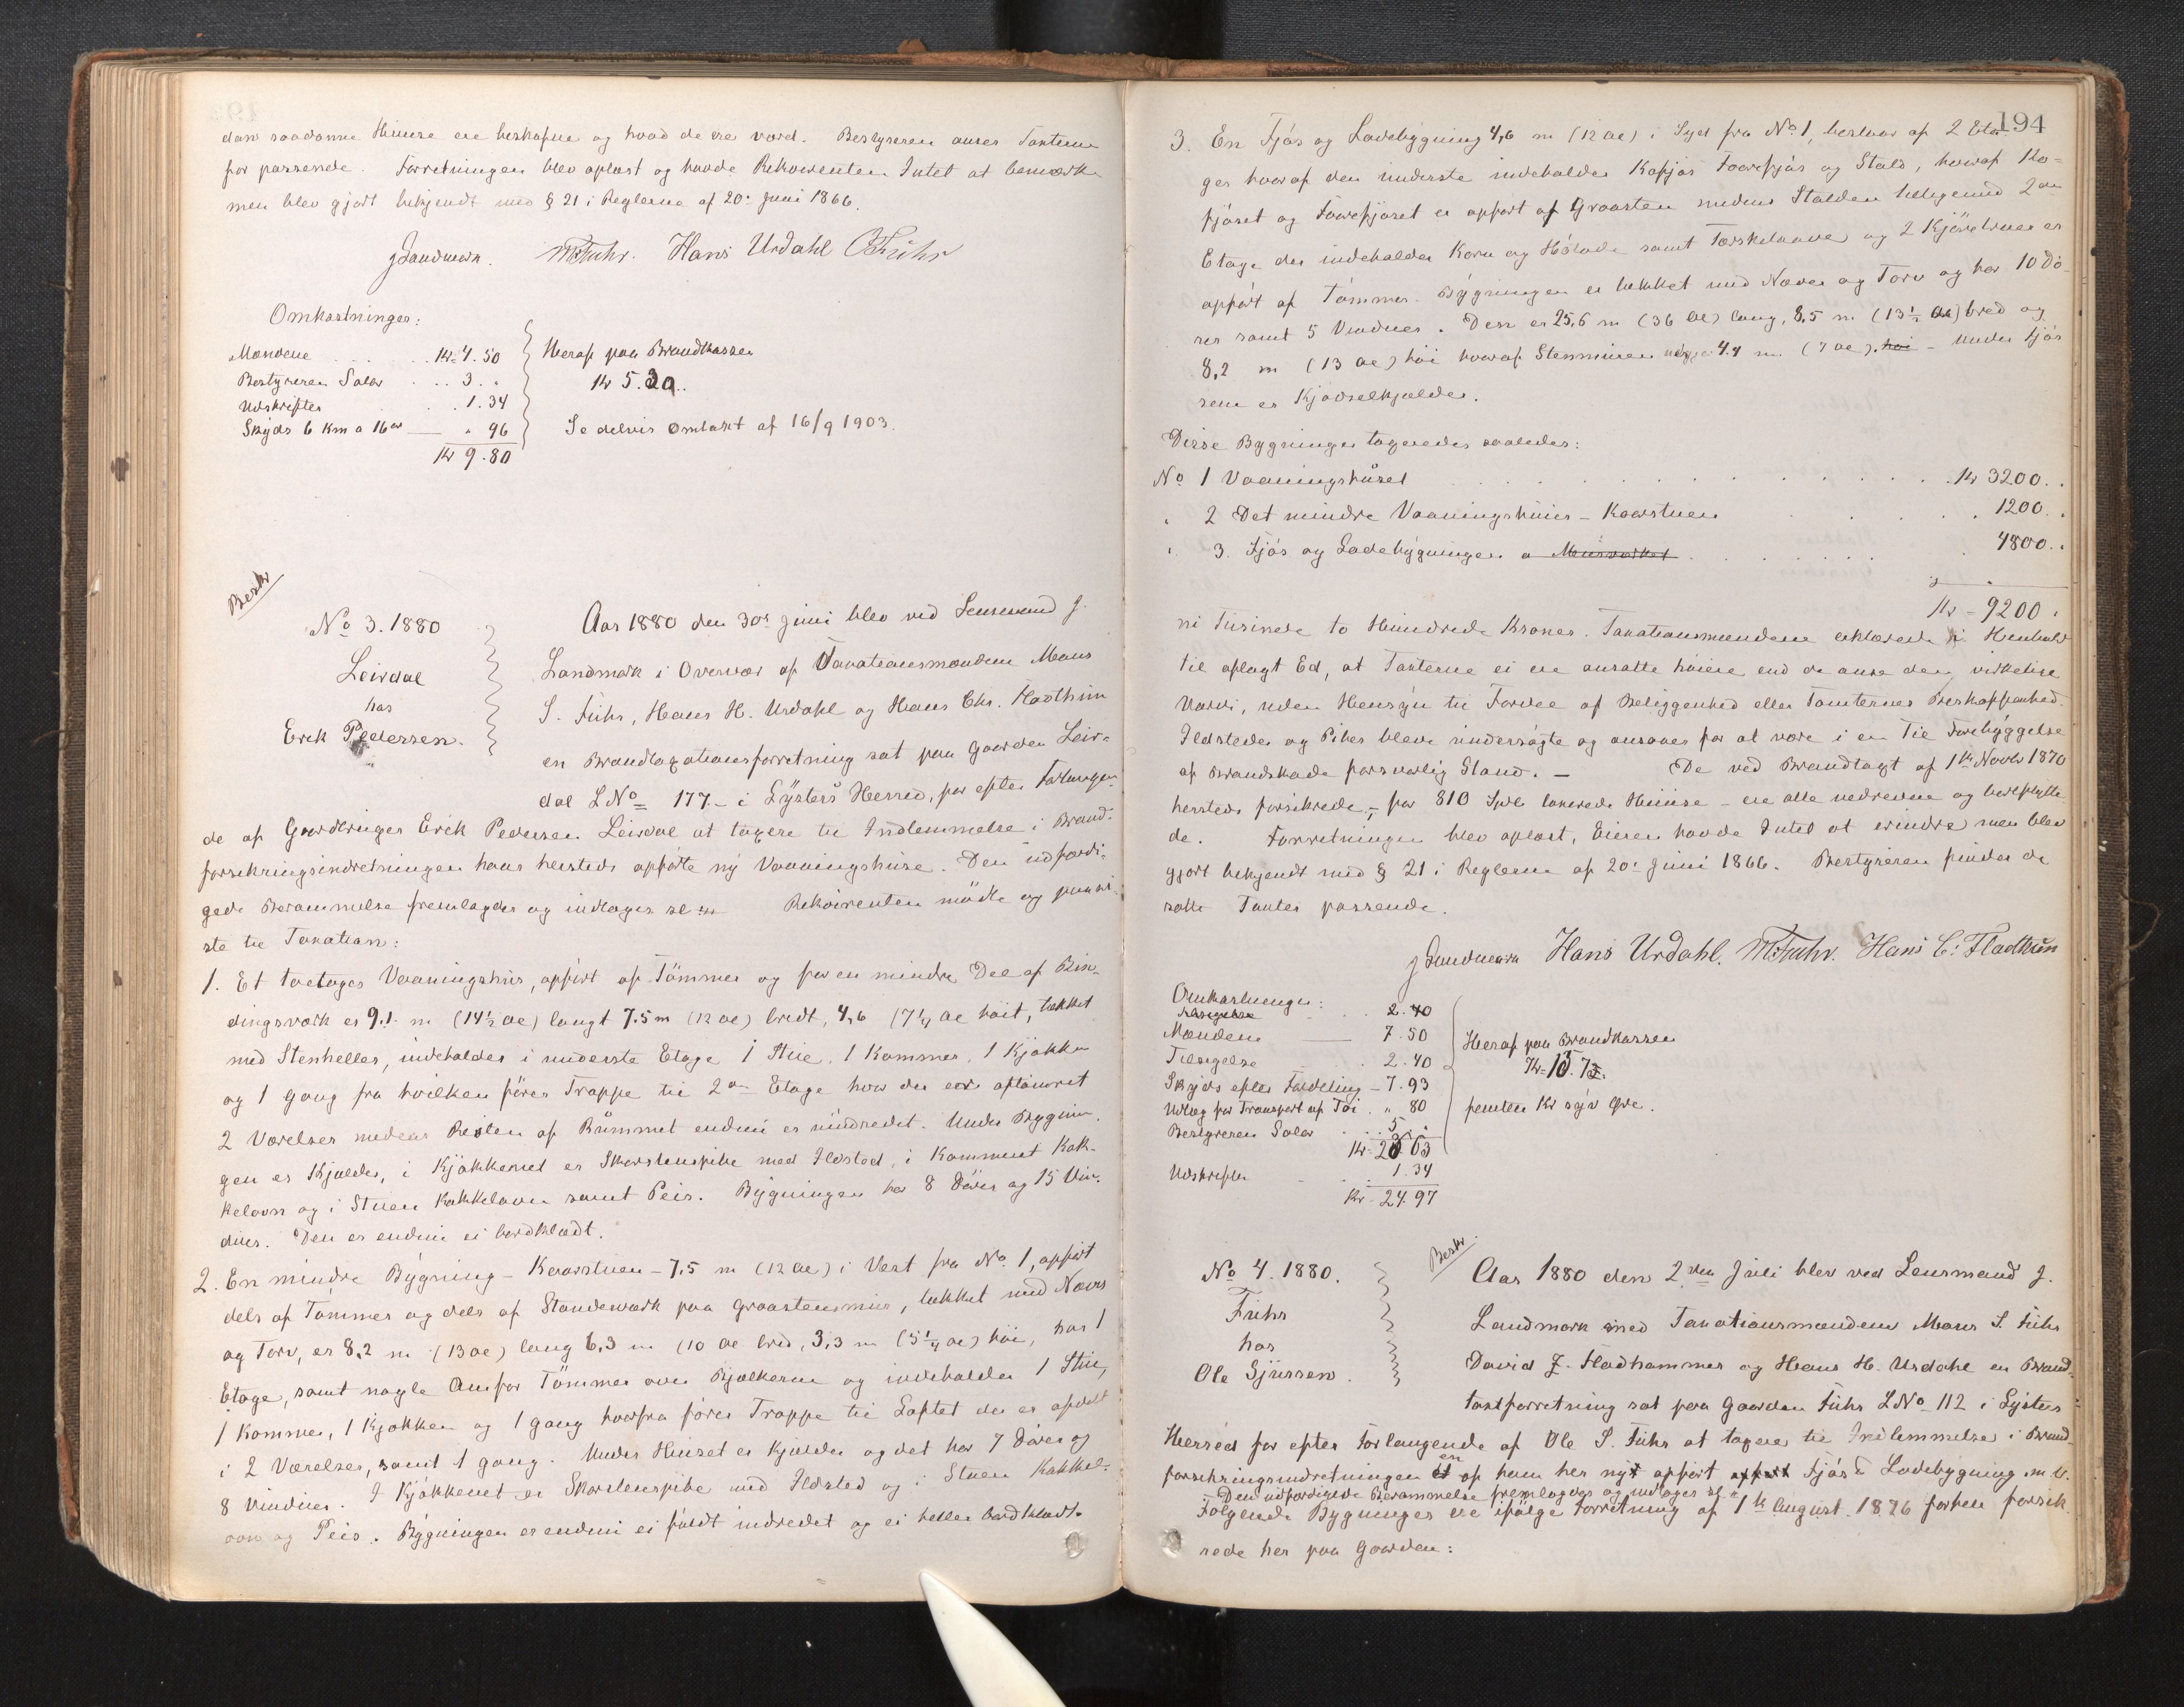 dan saadanne Huuse ere beskafne og hvad de ere værd. Bestyreren anser Taxterne
for passende. Forretningen blev oplæst og havde Rekvirenten Intet at bemærke
men blev gjort bekjendt med § 21 i Reglerne af 20de Juni 1866.
J Landmark. M Fuhr. Hans Urdahl O Fuhr
Omkostninger:
Mændene . . . . . Kr 4.50
Bestyreren Salær . . . 3. "
Udskrifter . . 1.34
Skyds 6 Km a 16 ør — " 96
Kr 9.80
Heraf paa Brandkassen
Kr 5.30.
Se delvis Omtaxt af 16/9 1903.
Beskr
No 3. 1880
Leirdal
hos
Erik Pedersen.
Aar 1880 den 30te Juni blev ved Lensmand J.
Landmark i Overvær af Taxationsmændene Mons
S. Fuhr, Hans H. Urdahl og Hans Chr. Fladthun
en Brandtaxationsforretning sat paa Gaarden Leir-
dal LNo 177 - i Lysters Herred, for efter Forlangen-
de af Gaardbruger Erik Pedersen Leirdal at taxere til Indlemmelse i Brand-
forsikringsindretningen hans hersteds opførte ny Vaaningshuse. Den udfærdi-
gede Berammelse fremlagdes og indtages sl Rekvirenten mødte og paavi-
ste til Taxation:
1. Et toetages Vaaningshus, opført af Tømmer og for en mindre Del af Bin-
dingsværk er 9.1 m (14½ Al) langt 7.5 m (12 Al) bredt, 4,6 (7¼ Al høit, tækket
med Stenheller, indeholder i underste Etage 1 Stue, 1 Kammer, 1 Kjøkken
og 1 Gang fra hvilken fører Trappe til 2den Etage hvor der er aftømret
2 Værelser medens Resten af Rummet endnu er uindredet. Under Bygnin-
gen er Kjælder, i Kjøkkenet er Skorstenspibe med Ildsted, i Kammeret Kak-
kelovn og i Stuen Kakkelovn samt Peis. Bygningen har 8 Døre og 15 Vin-
duer. Den er endnu ei bordklædt.
2. En mindre Bygning - Kaarstuen - 7,5 m (12 Al) i Vest fra No 1, opført
dels af Tømmer og dels af Standeværk paa Graastensmur, tækket med Næver
og Torv, er 8,2 m (13 Al) lang 6,3 m (10 Al bred, 3,3 m (5¼ Al) høi, har 1
Etage, samt nogle Omfar Tømmer over Bjælkerne og indeholder 1 Stue,
1 Kammer, 1 Kjøkken og 1 Gang hvorfra fører Trappe til Loftet der er afdelt
i 2 Værelser, samt 1 Gang. Under Huset er Kjælder og det har 7 Døre og
8 Vinduer. I Kjøkkenet er Skorstenspibe med Ildsted og i Stuen Kakkel-
ovn og Peis. Bygningen er endnu ei fuldt indredet og ei heller bordklædt.
194
3. En Fjøs og Ladebygning 4,6 m (12 Al) i Syd fra No 1, bestaar af 2 Eta-
ger hvoraf den underste indeholder Kofjøs Faarefjøs og Stald, hvoraf Ko-
fjøset og Faarefjøset er opført af Graasten medens Stalden tilligemed 2den
Etage der indeholder Korn og Hølade samt Tærskelaave og 2 Kjørebruer er
opført af Tømmer. Bygningen er tækket med Næver og Torv og har 10 Dø-
rer samt 5 Vinduer. Den er 25,6 m (36 Al) lang, 8,5 m (13½ Al) bred og
8,2 m (13 Al) høi hvoraf Stenmuren 4.4 m (7 Al) høi - under Fjøs
sene er Kjødselkjælder.
Disse Bygninger taxeredes saaledes:
No 1 Vaaningshuset . . . . . . . . . . . Kr 3200. "
" 2 Det mindre Vaaningshuus - Kaarstuen . . . . 1200. "
" 3. Fjøs og Ladebygningen a Muurværket . . . . 4800. "
Kr - 9200 "
ni Tusinde to Hundrede Kroner. Taxationsmændene erklærede i Henhold
til aflagt Ed, at Taxterne ei ere ansatte høiere end de anse den virkelige
Værdi, uden Hensyn til Fordel af Beliggenhed eller Tomternes Beskaffenhed.
Ildsteder og Piber bleve undersøgte og ansaaes for at være i en til Forebyggelse
af Brandskade forsvarlig Stand. — De ved Brandtaxt af 1ste Novbr 1870
hersteds forsikrede, - for 810 Spd takserede Huuse - ere alle nedrevne og bortflytte-
de. Forretningen blev oplæst, Eieren havde Intet at erindre men blev
gjort bekjendt med § 21 i Reglerne af 20de Juni 1866. Bestyreren finder de
satte Taxter passende.
J Landmark Hans Urdahl. M Fuhr. Hans C: Fladthun
Omkostninger:
Tilsigelse . . 2.40
Mændene — 7.50
Tilsigelse . 2.40
Skyds efter Fordeling - 7.93
Udlæg for Transport af Tøi . " 80
Bestyreren Salær . . 5. "
Kr - 23 63
Udskrifter . . 1.34
Kr - 24.97
Heraf paa Brandkassen
Kr 15.7
femten Kr syv Øre.
No 4. 1880.
Fuhr
hos
Ole Sjursen.
Beskr.
Aar 1880 den 2den Juli blev ved Lensmand J.
Landmark med Taxationsmændene Mons S. Fuhr
David J. Fladhammer og Hans H. Urdahl en Brand-
taxtforretning sat paa Gaarden Fuhr LNo 112 i Lysters
Herred for efter Forlangende af Ole S. Fuhr at taxere til Indlemmelse i Brand-
forsikringsindretningen et en af ham her nyt opført opført Fjøs & Ladebygning m. v.
Den udfærdigede Berammelse fremlagdes og indtages sl
Følgende Bygninger ere ifølge Forretning af 1ste August 1876 forhen forsik-
rede her paa Gaarden: